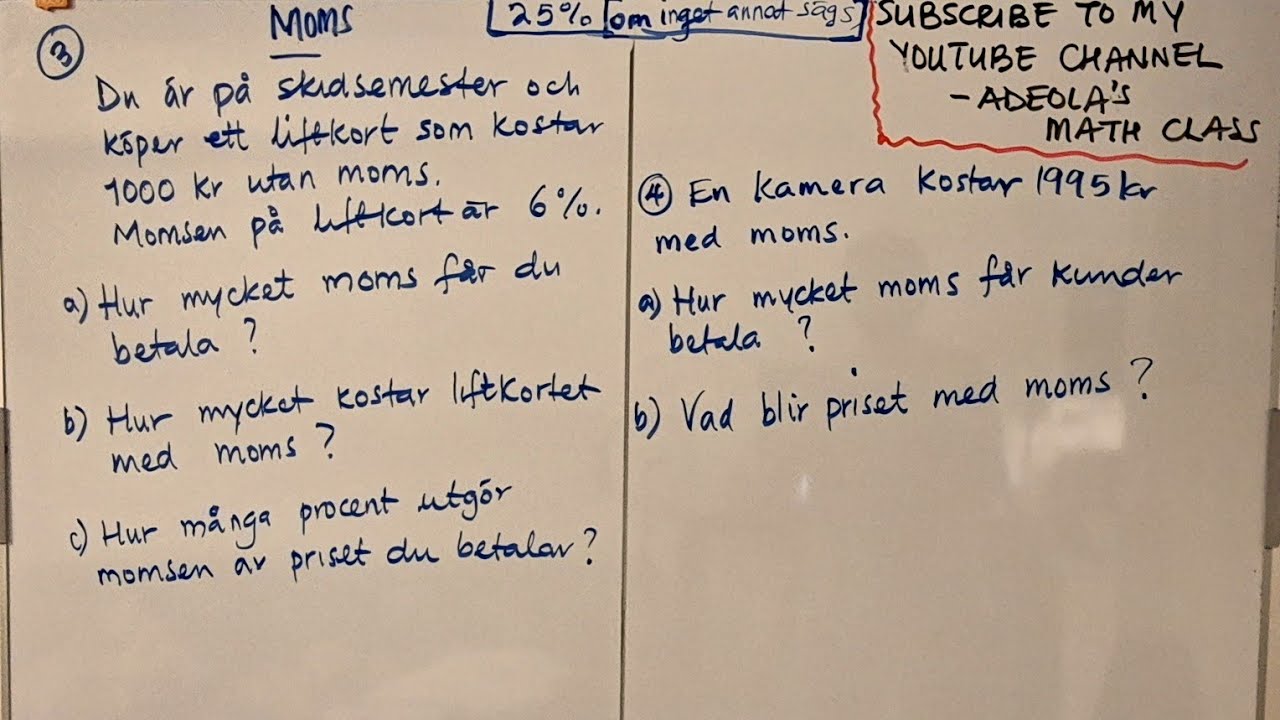 Moms
25% (om inget annat sägs)
SUBSCRIBE TO MY
YOUTUBE CHANNEL
- ADEOLA'S
MATH CLASS
3
Du är på skidsemester och
köper ett liftkort som kostar
1000 kr utan moms.
Momsen på liftkort är 6%.
a) Hur mycket moms får du
betala ?
b) Hur mycket kostar liftkortet
med moms ?
c) Hur många procent utgör
momsen av priset du betalar ?
4 En kamera kostar 1995 kr
med moms.
a) Hur mycket moms får kunder
betala ?
b) Vad blir priset med moms ?